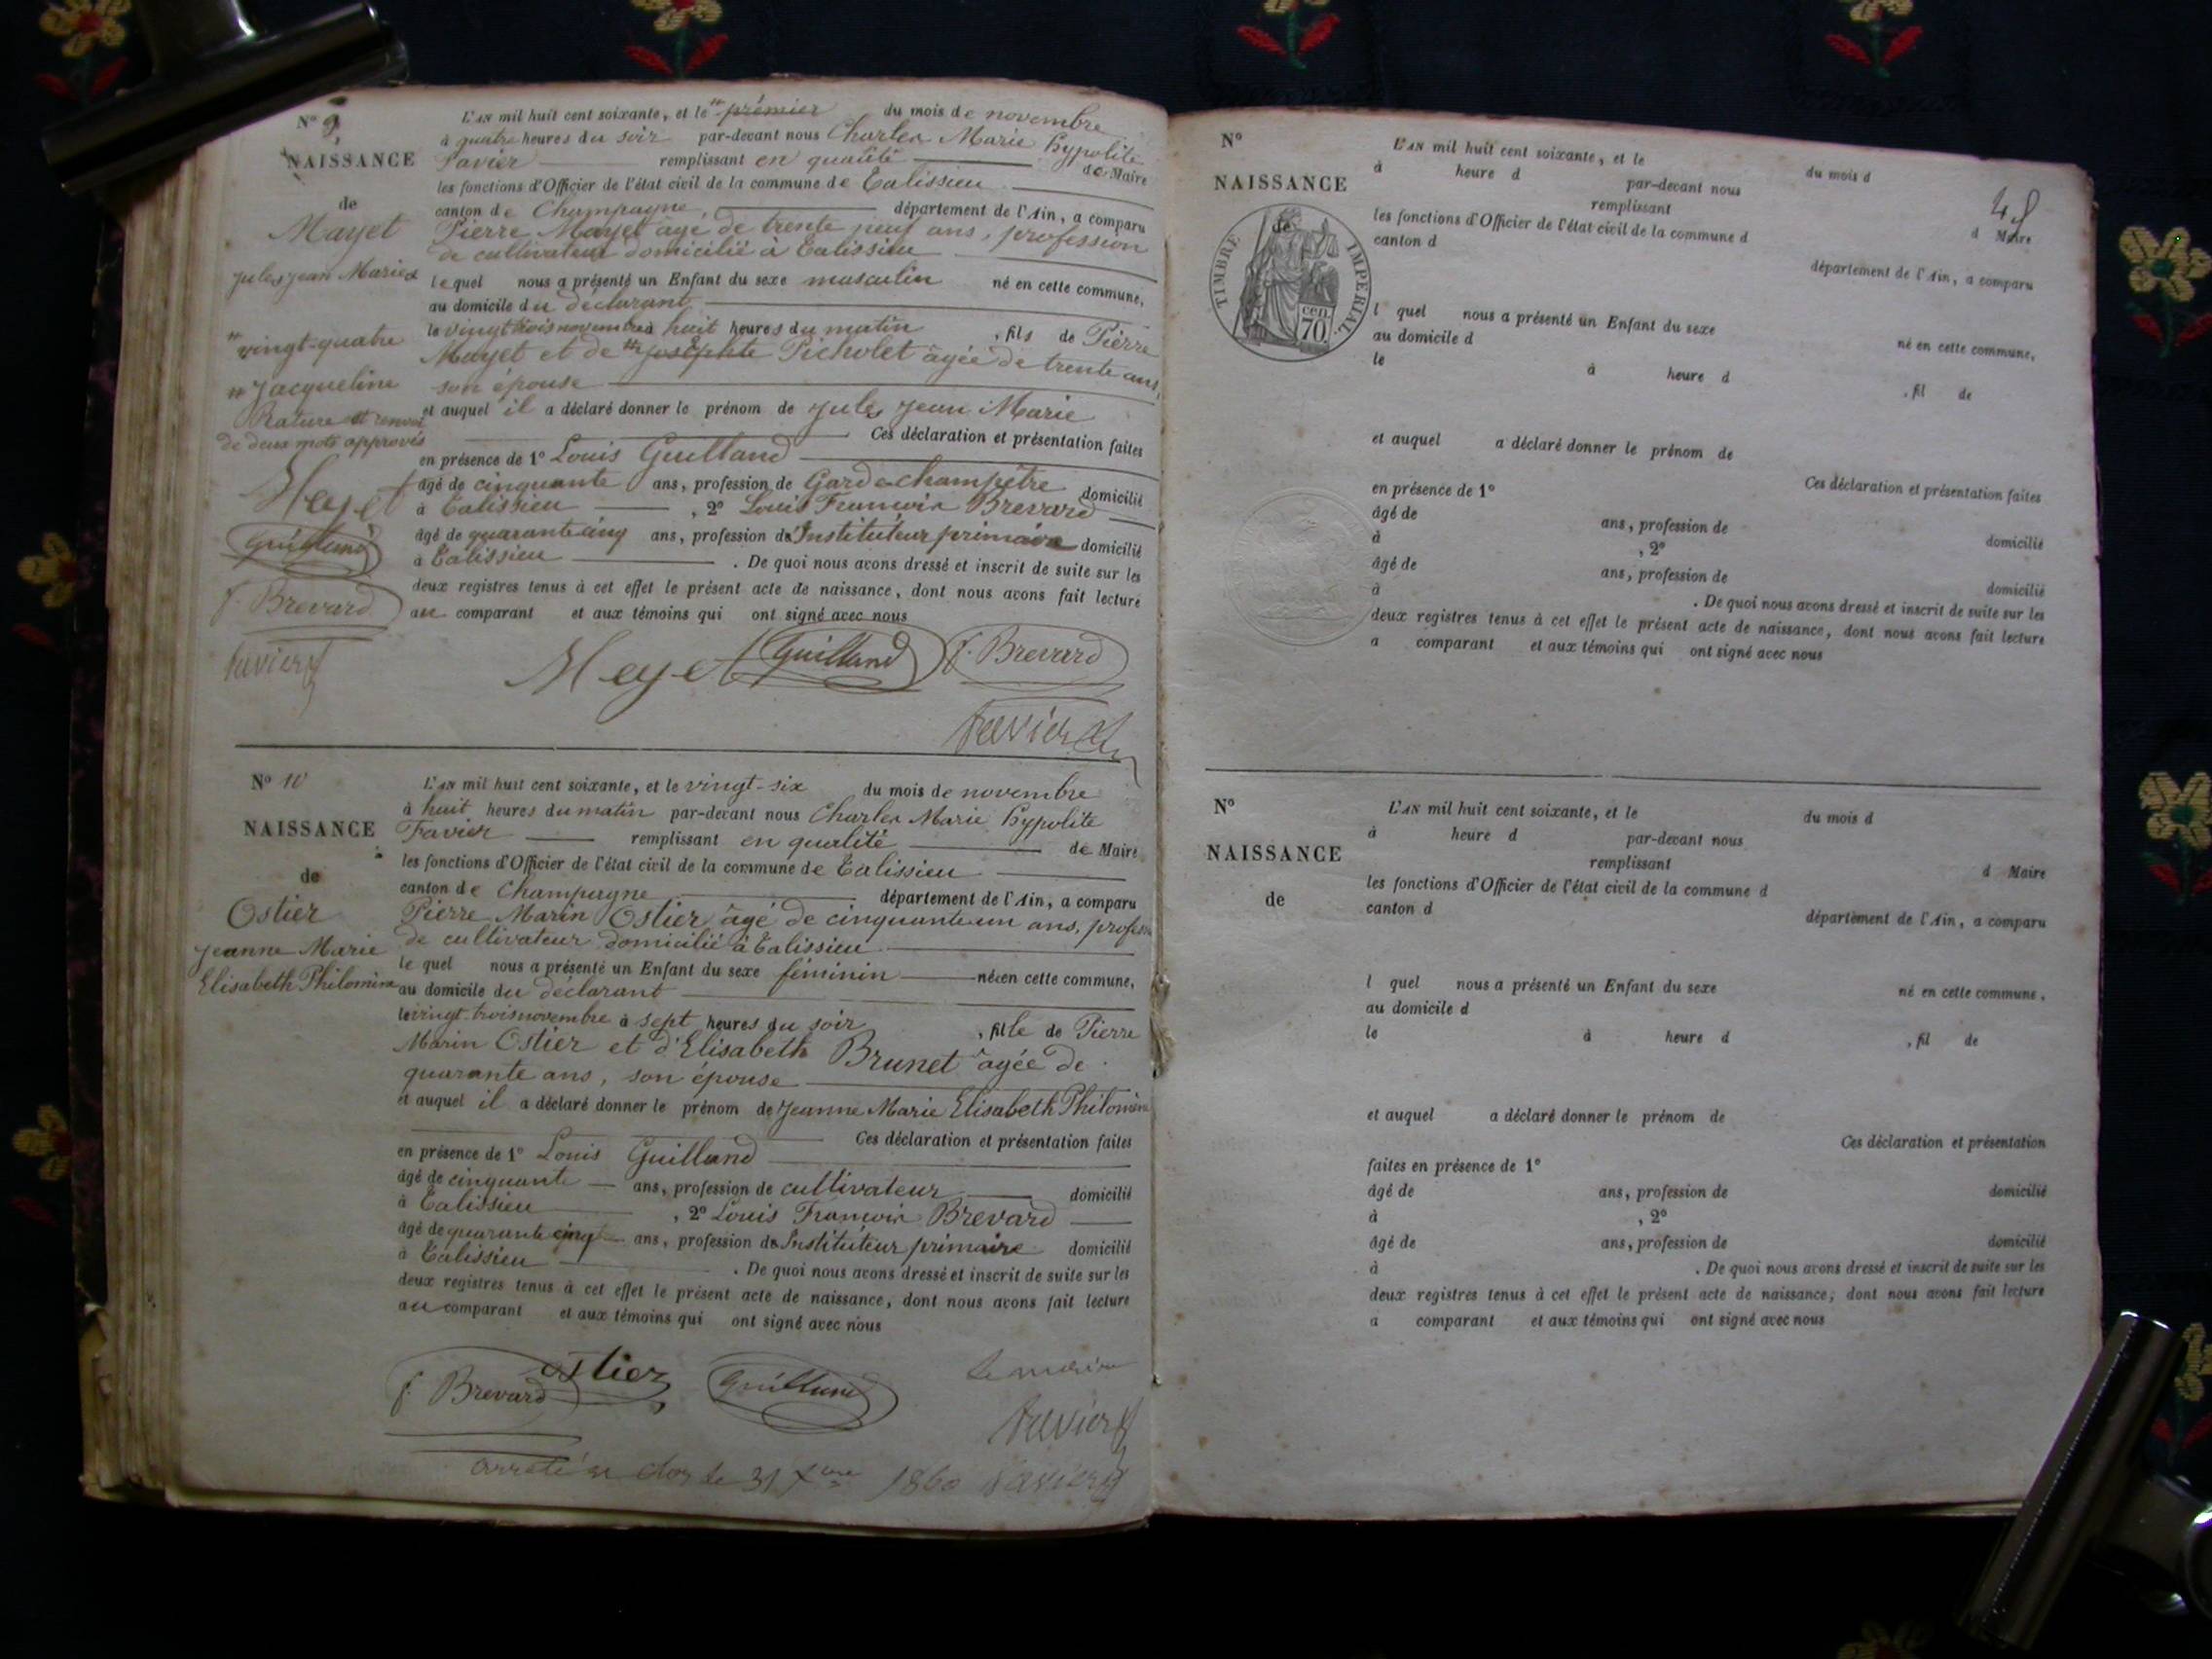 N° 9,
NAISSANCE
de
Mayet
Jules Jean Marie
" vingt-quatre
" Jacqueline
Rature et renvoi
de deux mots approuvés
Meyet
Guilland
f. Brevard
Favier
L'AN mil huit cent soixante, et le " prémier du mois de novembre
à quatre heures du soir par-devant nous Charles Marie Hypolite
Favier remplissant en qualité de Maire
les fonctions d'Officier de l'état civil de la commune de Talissieu
canton de Champagne, département de l'Ain, a comparu
Pierre Mayet âgé de trente neuf ans, profession
de cultivateur domicilié à Talissieu
lequel nous a présenté un Enfant du sexe masculin né en cette commune,
au domicile du déclarant
le vingt trois novembre à huit heures du matin , fils de Pierre
Mayet et de " Josephte Picholet âgée de trente ans,
son épouse
et auquel il a déclaré donner le prénom de Jules Jean Marie
Ces déclaration et présentation faites
en présence de 1° Louis Guilland
âgé de cinquante ans, profession de Garde champêtre domicilié
à Talissieu , 2° Louis Francois Brevard
âgé de quarante cinq ans, profession de Instituteur primaire domicilié
à Talissieu . De quoi nous avons dressé et inscrit de suite sur les
deux registres tenus à cet effet le présent acte de naissance, dont nous avons fait lecture
au comparant et aux témoins qui ont signé avec nous
Meyet Guilland f. Brevard
Favier
N° 10
NAISSANCE
de
Ostier
Jeanne Marie
Elisabeth Philomine
L'AN mil huit cent soixante, et le vingt-six du mois de novembre
à huit heures du matin par-devant nous Charles Marie Hypolite
Favier remplissant en qualité de Maire
les fonctions d'Officier de l'état civil de la commune de Talissieu
canton de Champagne département de l'Ain, a comparu
Pierre Marin Ostier âgé de cinquante un ans, profession
de cultivateur domicilié à Talissieu
le quel nous a présenté un Enfant du sexe féminin née en cette commune,
au domicile du déclarant
le vingt-trois novembre à sept heures du soir , fille de Pierre
Marin Ostier et d'Elisabeth Brunet âgée de
quarante ans, son épouse
et auquel il a déclaré donner le prénom de Jeanne Marie Elisabeth Philomine
Ces déclaration et présentation faites
en présence de 1° Louis Guilland
âgé de cinquante ans, profession de cultivateur domicilié
à Talissieu , 2° Louis Francois Brevard
âgé de quarante cinq ans, profession de Instituteur primaire domicilié
à Talissieu . De quoi nous avons dressé et inscrit de suite sur les
deux registres tenus à cet effet le présent acte de naissance, dont nous avons fait lecture
au comparant et aux témoins qui ont signé avec nous
f. Brevard ostier Guilland le maire
Favier
arrêté et clos le 31 Xbre 1860 Favier
N°
NAISSANCE
de
TIMBRE IMPÉRIAL.
cen.
70.
48
L'AN mil huit cent soixante, et le du mois d
à heure d par-devant nous
remplissant d Maire
les fonctions d'Officier de l'état civil de la commune d
canton d département de l'Ain, a comparu
l quel nous a présenté un Enfant du sexe né en cette commune,
au domicile d
le à heure d , fil de
et auquel a déclaré donner le prénom de
Ces déclaration et présentation faites
en présence de 1°
âgé de ans, profession de domicilié
à , 2°
âgé de ans, profession de domicilié
à . De quoi nous avons dressé et inscrit de suite sur les
deux registres tenus à cet effet le présent acte de naissance, dont nous avons fait lecture
a comparant et aux témoins qui ont signé avec nous
N°
NAISSANCE
de
L'AN mil huit cent soixante, et le du mois d
à heure d par-devant nous
remplissant d Maire
les fonctions d'Officier de l'état civil de la commune d
canton d département de l'Ain, a comparu
l quel nous a présenté un Enfant du sexe né en cette commune,
au domicile d
le à heure d , fil de
et auquel a déclaré donner le prénom de
Ces déclaration et présentation
faites en présence de 1°
âgé de ans, profession de domicilié
à , 2°
âgé de ans, profession de domicilié
à . De quoi nous avons dressé et inscrit de suite sur les
deux registres tenus à cet effet le présent acte de naissance; dont nous avons fait lecture
a comparant et aux témoins qui ont signé avec nous